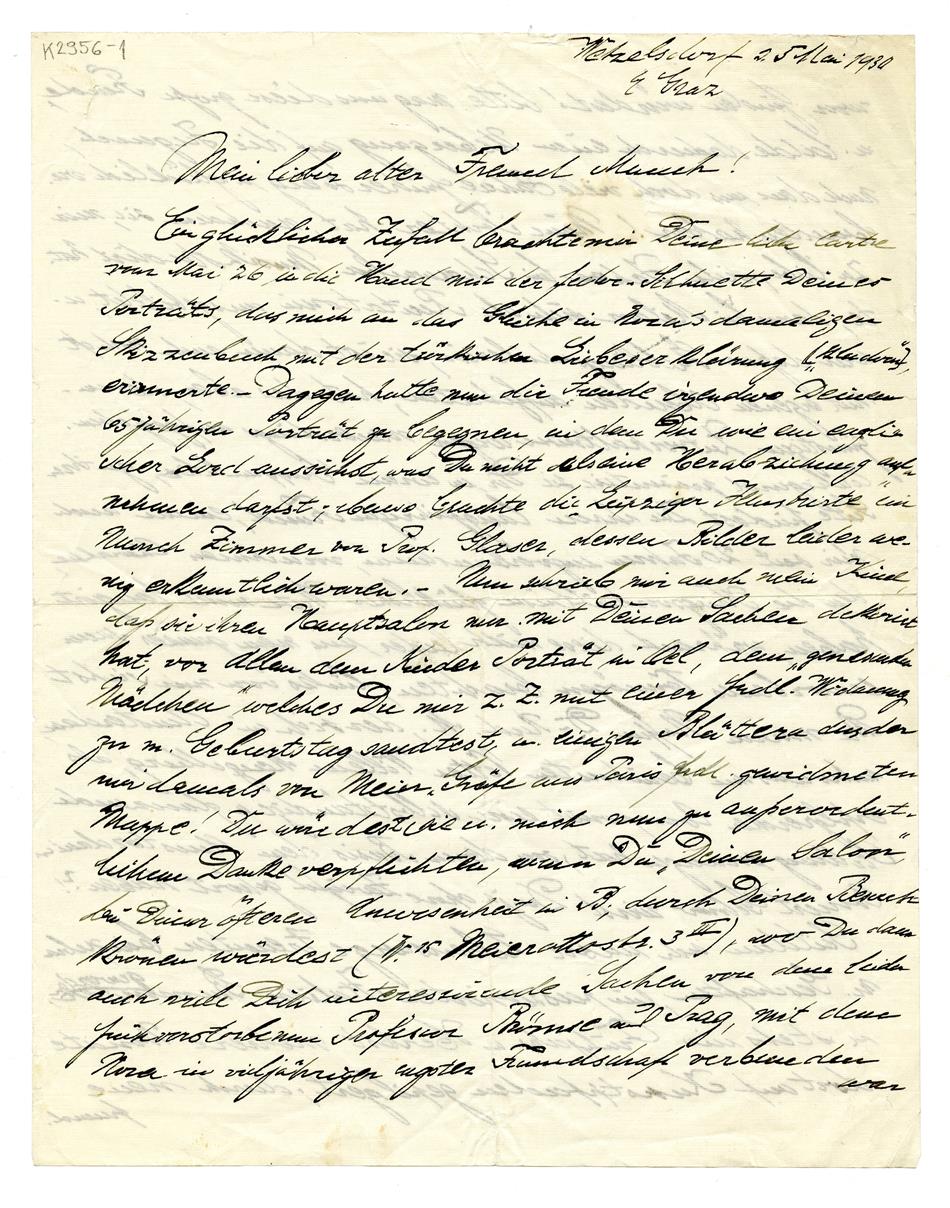 K2956-1
Wetzelsdorf 25 Mai 1930
b/ Graz
Mein lieber alter Freund Munch!
Ein glücklicher Zufall brachte mir Deine liebe Carte
vom Mai 26 in die Hand mit der Feder-Silhuette Deines
Porträts, das mich an das Gleiche in Nora's damaligen
Skizzenbuch mit der türkischen Liebeserklärung
erinnerte. – Dagegen hatte nun die Freude irgendwo Deinem
65jährigen Porträt zu begegnen, in dem Du wie ein engli-
scher Lord aussiehst, was Du nicht als eine Herabziehung auf-
nehmen darfst; ebenso brachte die „Leipziger Illustrirte" ein
Munch Zimmer von Prof. Glaser, dessen Bilder leider we-
nig erkenntlich waren. – Nun schrieb mir auch mein Kind,
daß sie ihren Hauptsalon nur mit Deinen Sachen dekorirt
hat, vor Allem dem Kinder Porträt in Oel, dem „genesenden
Mädchen" welches Du mir z. Z. mit einer frdl. Widmung
zu m. Geburtstag sandtest, u. einigen Blättern aus der
mir damals von Meier-Gräfe aus Paris frdl. gewidmeten
Mappe! Du würdest sie u. mich nun zu außerordent-
lichem Danke verpflichten, wenn Du „Deinen Salon",
bei Deiner öfteren Anwesenheit in B., durch Deinen Besuch
krönen würdest (W. 15 Meierottostr. 3 III), wo Du dann
auch viele Dich interessirende Sachen von dem leider
früh verstorbenen Professor Brömse aus Prag, mit dem
Nora in vieljähriger engster Freundschaft verbunden
war